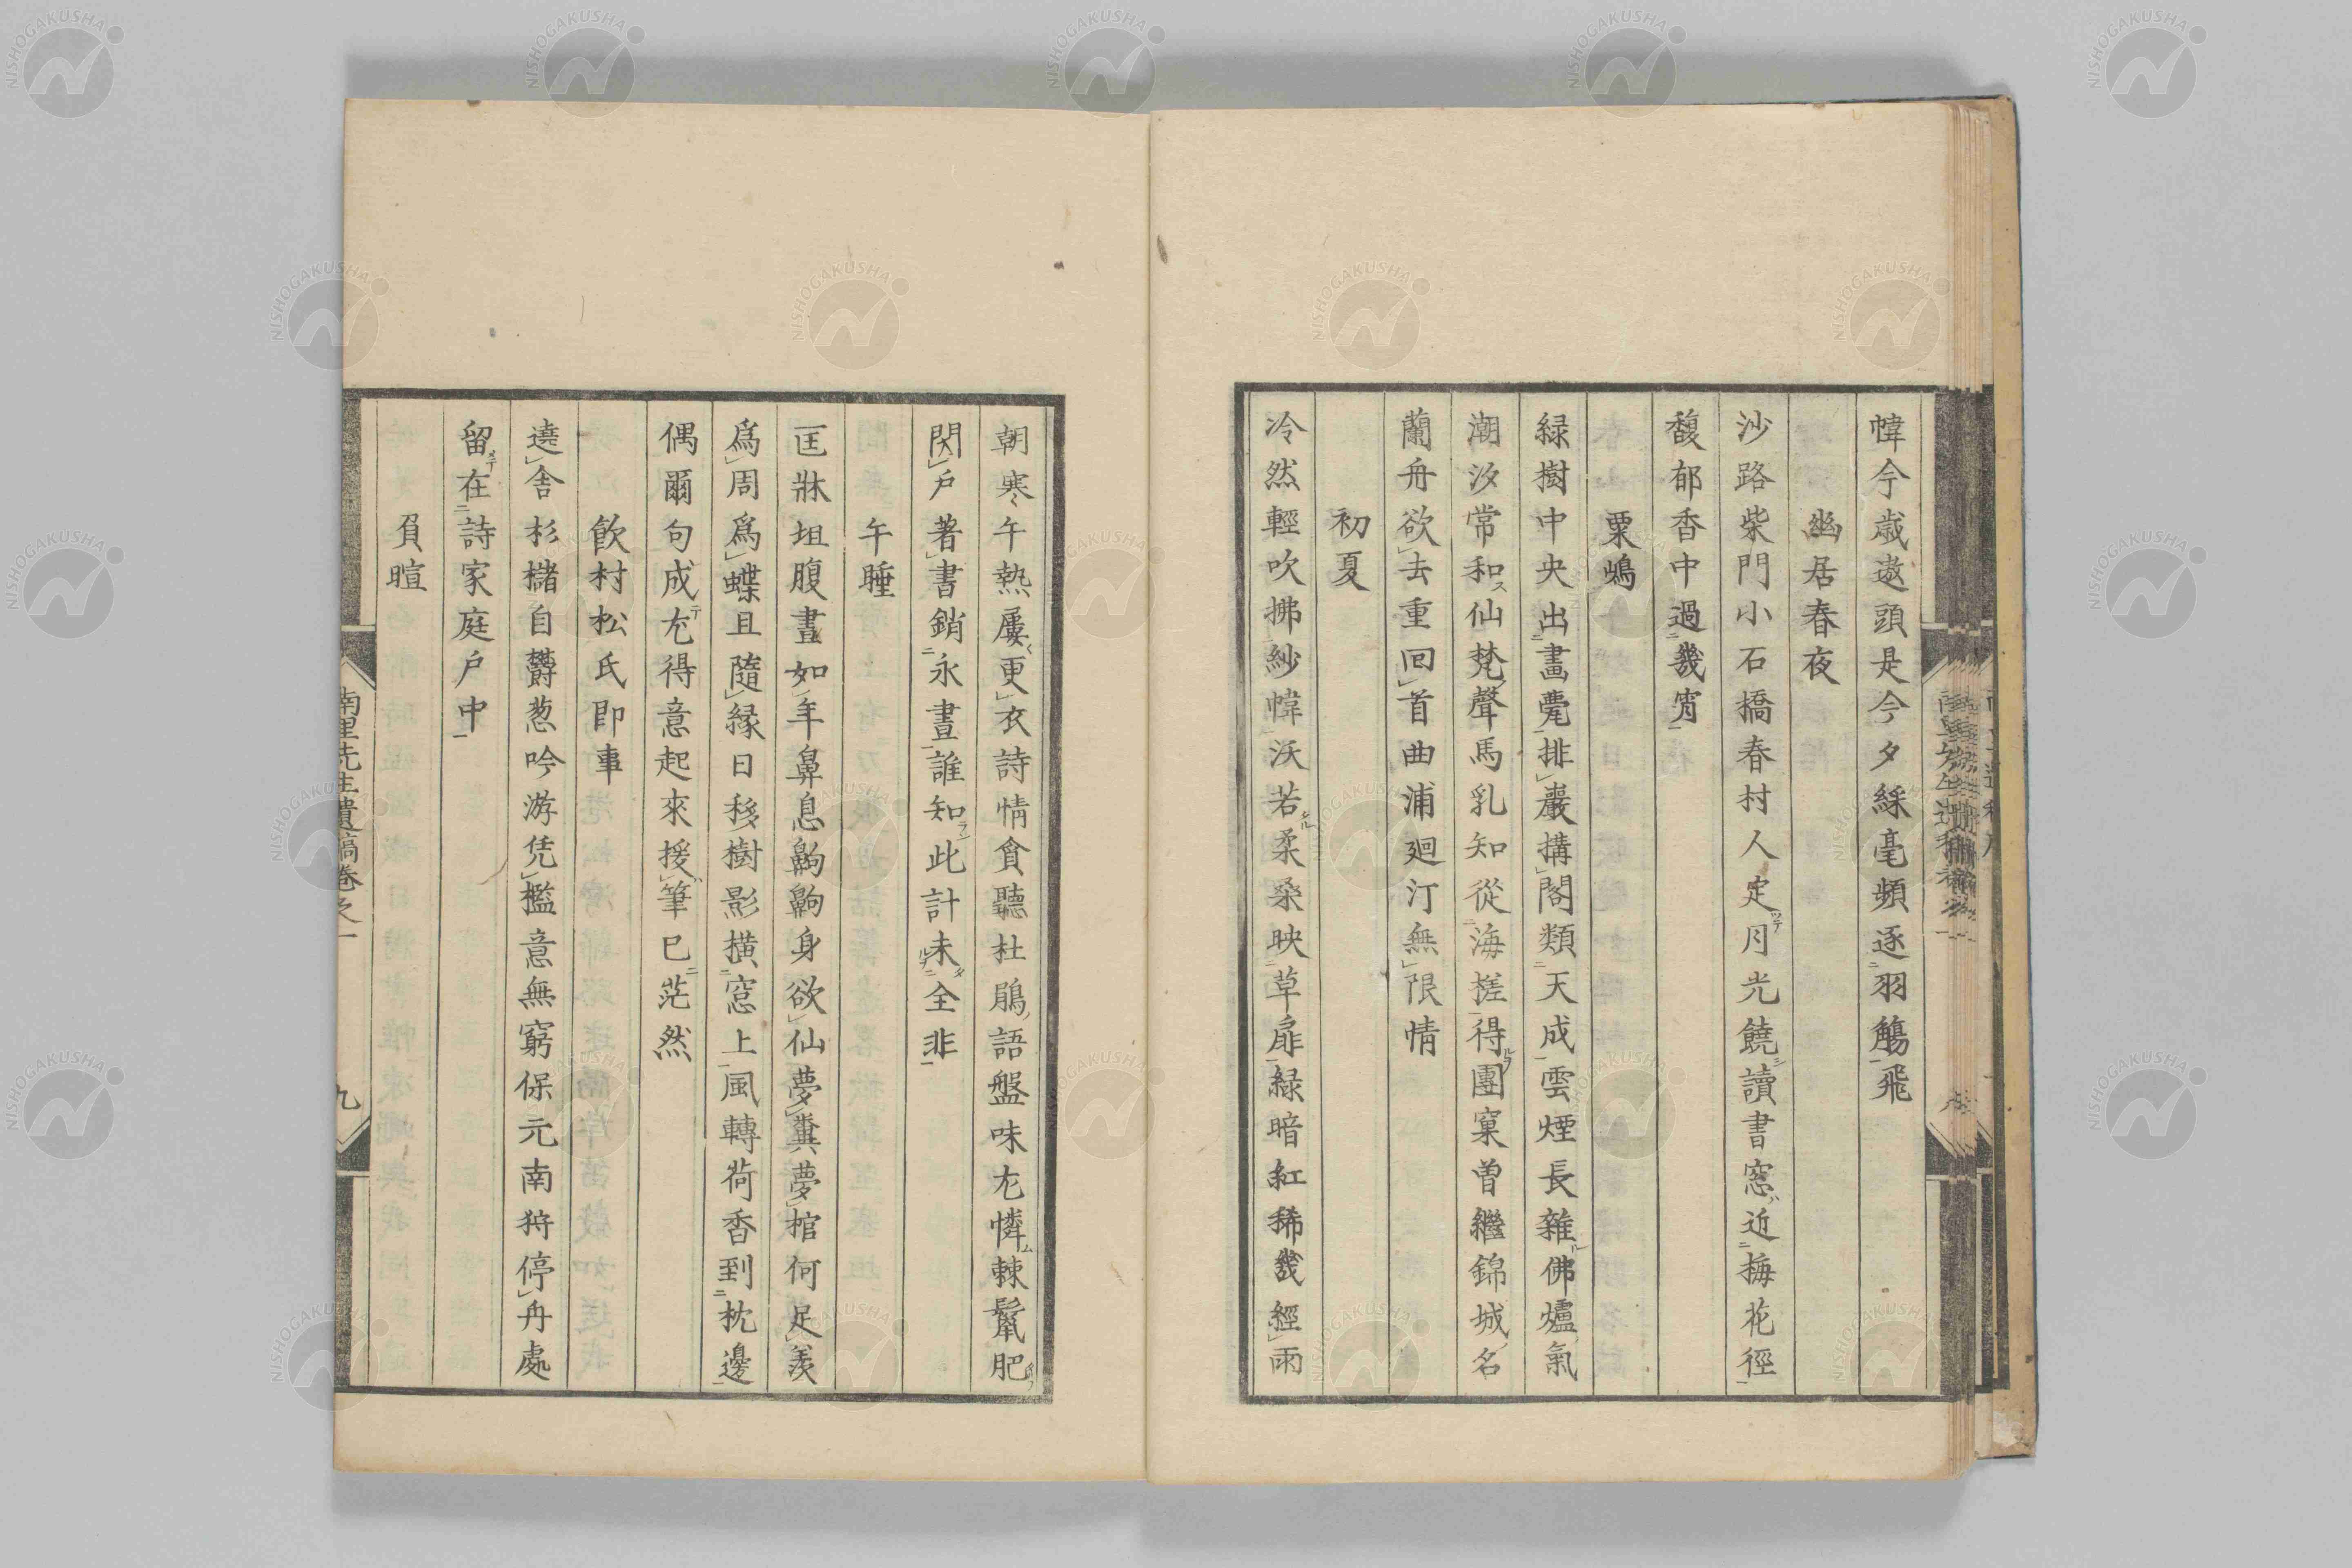 幃今歳遨頭是今夕綵毫頻逐羽觴飛
幽居春夜
沙路柴門小石橋春村人定月光饒讀書窓近梅花徑
馥郁香中過幾宵
粟嶋
緑樹中央出畫甍排巖搆閣類天成雲煙長雜佛爐氣
潮汐常和仙梵聲馬乳知從海槎得團窠曽繼錦城名
蘭舟欲去重回首曲浦廻汀無限情
初夏
冷然輕吹拂紗幃沃若柔桑映草扉緑暗紅稀幾經雨
朝寒午熱屢更衣詩情貪聽杜鵑語盤味尤憐棘鬣肥
閉戸著書銷永晝誰知此計未全非
午睡
匡牀坦腹晝如年鼻息齁齁身欲仙夢糞夢棺何足羨
爲周爲蝶且隨縁日移樹影横窓上風轉荷香到枕邊
偶爾句成尤得意起來援筆已茫然
飲村松氏即事
遶舎杉櫧自欝葱吟游凭檻意無窮保元南狩停舟處
留在詩家庭戸中
負暄
南里先生遺稿卷之一
九
NISHOGAKUSHA